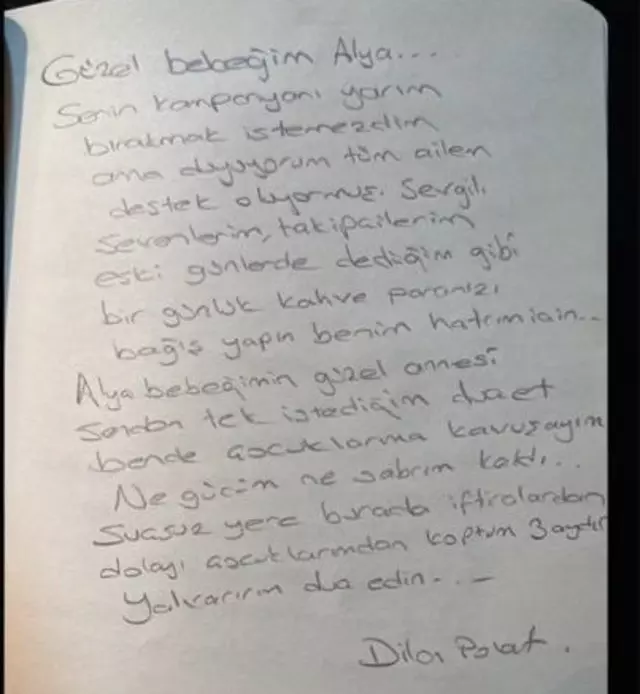 Güzel bebeğim Alya...
Senin kampanyanı yarım
bırakmak istemezdim
ama duyuyorum tüm ailen
destek oluyormuş. Sevgili
sevenlerim, takipçilerim
eski günlerde dediğim gibi
bir günlük kahve paranızı
bağış yapın benim hatrım için..
Alya bebeğimin güzel annesi
senden tek istediğim dua et
bende çocuklarıma kavuşayım
Ne gücüm ne sabrım kaldı...
Suçsuz yere burada iftiralardan
dolayı çocuklarımdan koptum 3 aydır
Yalvarırım dua edin...-
Dilan Polat.